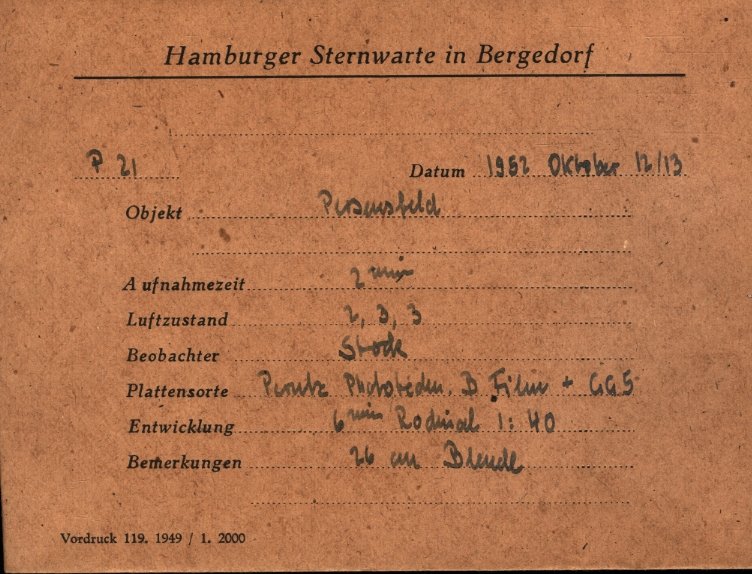 Hamburger Sternwarte in Bergedorf
P 21 Datum 1952 Oktober 12/13
Objekt Perseusfeld
Aufnahmezeit 2 min
Luftzustand 2, 3, 3
Beobachter Stock
Plattensorte Perutz B Film + GG5
Entwicklung 6 min Rodinal 1:40
Bemerkungen 26 cm Blende
Vordruck 119. 1949 / 1. 2000